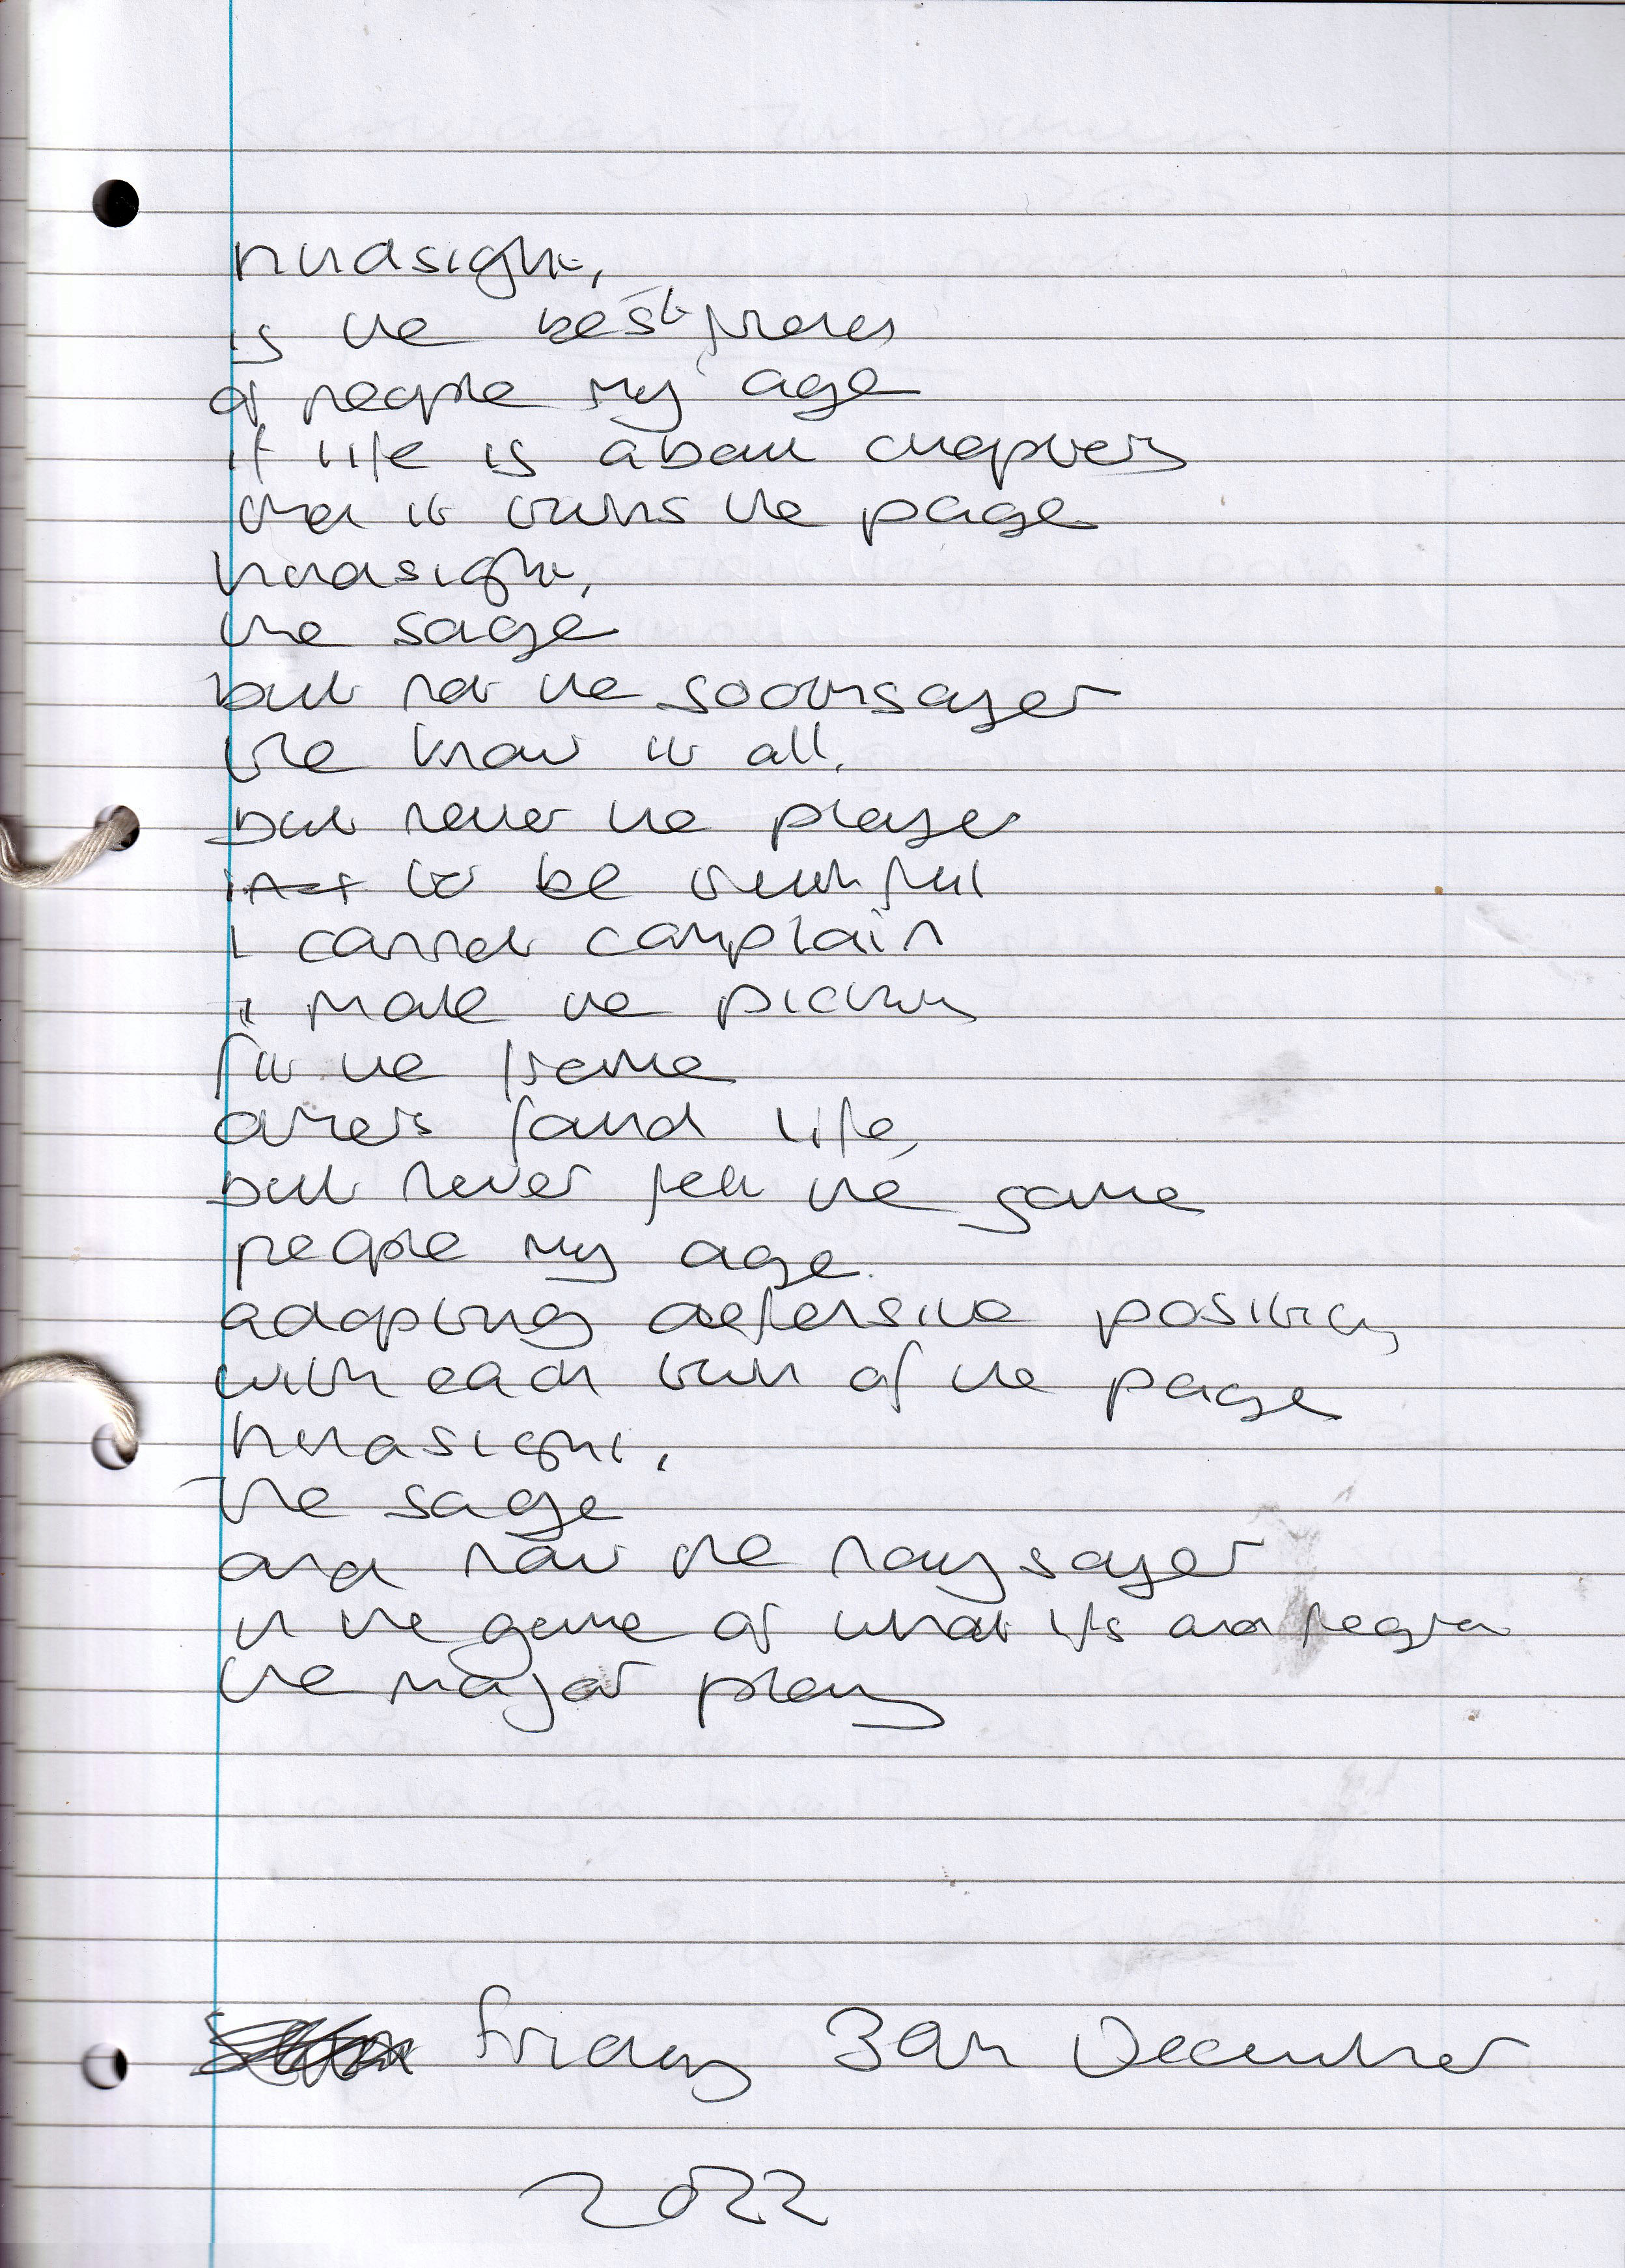 hindsight,
is the best friend
of people my age
if life is about chapters
then it turns the page
hindsight,
the sage
but not the soothsayer
the know it all.
but never the player
to be truthful
I cannot complain
I made the picture
fit the frame
others found life,
but never felt the same
people my age.
adopting defensive positions
with each turn of the page
hindsight,
the sage
and now the naysayer
in the game of what ifs and regret
the major player
Friday 30th December
2022